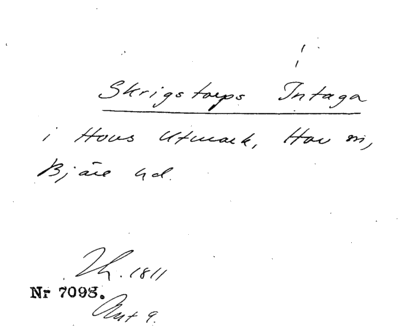 Skrigstorps Intaga
i Hovs Utmark, Hov sn,
Bjäre hd.
Th. 1811
Nr 7098.
Ant 9.